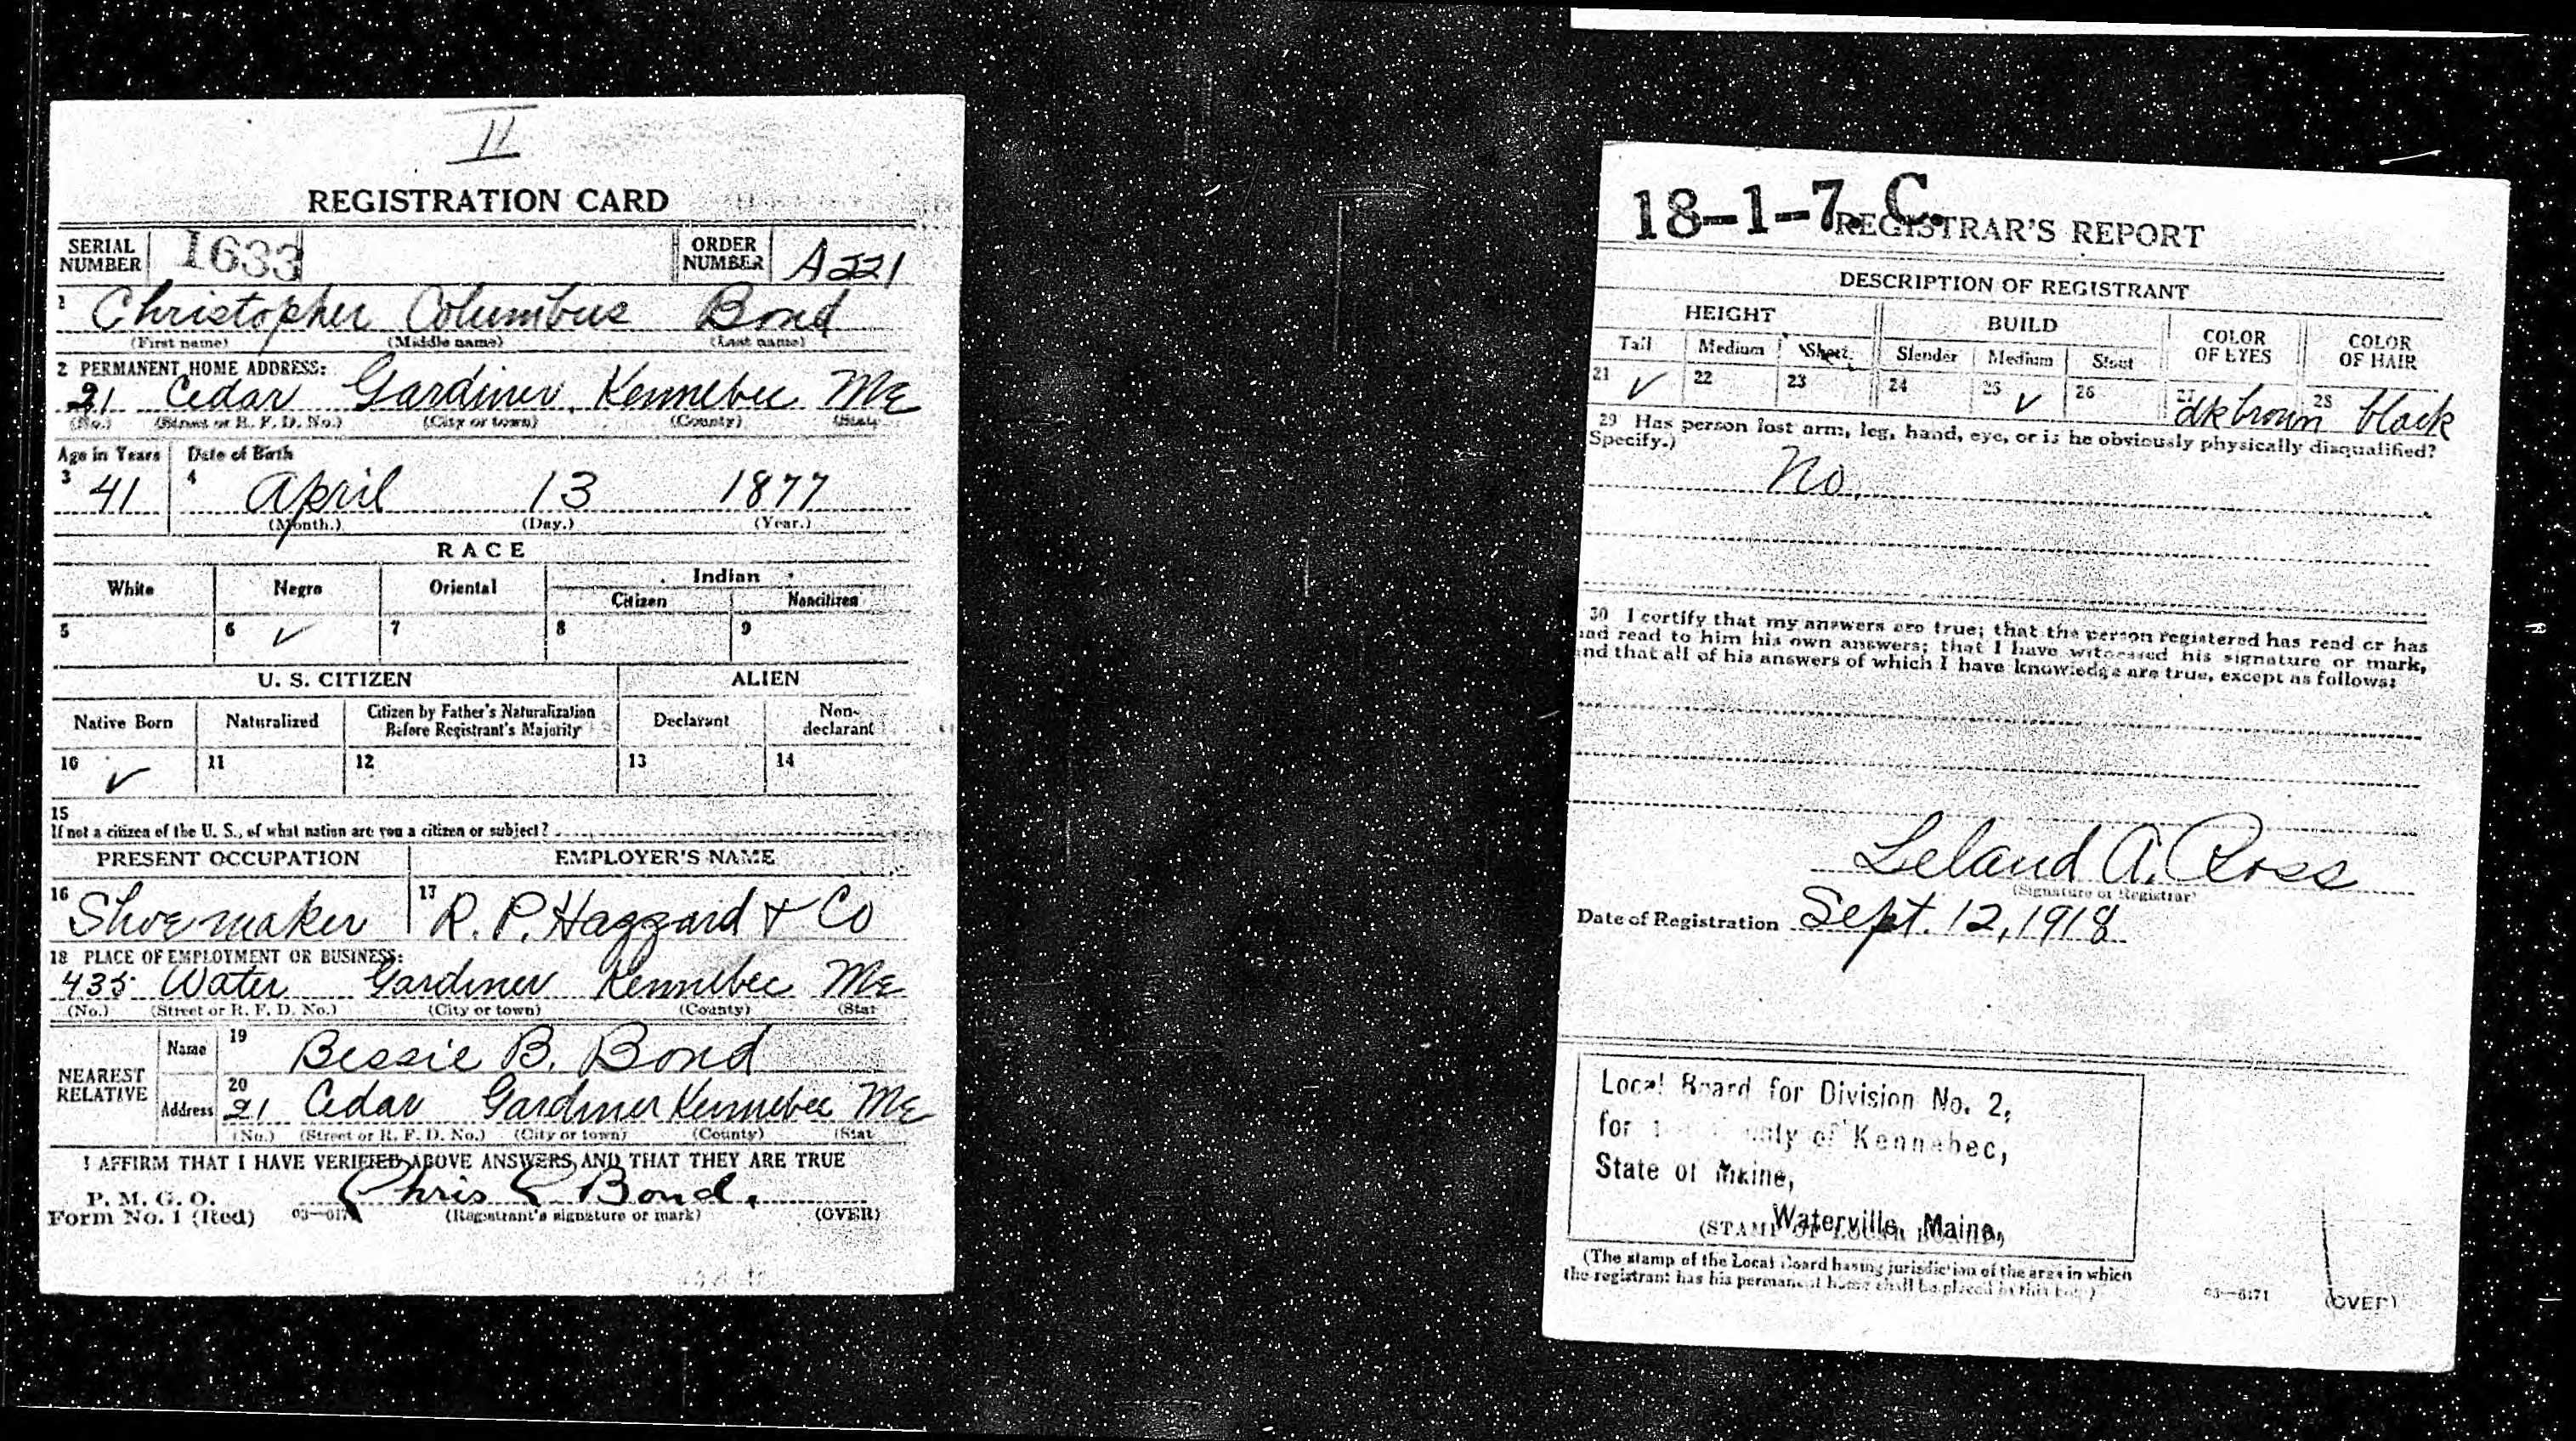 II
REGISTRATION CARD
SERIAL NUMBER 1633 ORDER NUMBER A221
1 Christopher Columbus Bond
(First name) (Middle name) (Last name)
2 PERMANENT HOME ADDRESS:
21 Cedar Gardiner Kennebec Me
(No.) (Street or R. F. D. No.) (City or town) (County) (State
Age in Years Date of Birth
3 41 4 April 13 1877
(Month.) (Day.) (Year.)
RACE
White Negro Oriental Indian
Citizen Noncitizen
5 6 ✓ 7 8 9
U. S. CITIZEN ALIEN
Native Born Naturalized Citizen by Father's Naturalization Before Registrant's Majority Declarant Non-declarant
10 ✓ 11 12 13 14
15
If not a citizen of the U. S., of what nation are you a citizen or subject?
PRESENT OCCUPATION EMPLOYER'S NAME
16 Shoemaker 17 R. P. Hazzard & Co
18 PLACE OF EMPLOYMENT OR BUSINESS:
435 Water Gardiner Kennebec Me
(No.) (Street or R. F. D. No.) (City or town) (County) (Stat
NEAREST RELATIVE
Name 19 Bessie B. Bond
Address 20 21 Cedar Gardiner Kennebec Me
(No.) (Street or R. F. D. No.) (City or town) (County) (Stat
I AFFIRM THAT I HAVE VERIFIED ABOVE ANSWERS AND THAT THEY ARE TRUE
P. M. G. O.
Form No. 1 (Red) 03—617 Chris C Bond.
(Registrant's signature or mark) (OVER)
18-1-7. C.
REGISTRAR'S REPORT
DESCRIPTION OF REGISTRANT
HEIGHT BUILD COLOR OF EYES COLOR OF HAIR
Tall Medium Short Slender Medium Stout
21 ✓ 22 23 24 25 ✓ 26 27 dk brown 28 black
29 Has person lost arm, leg, hand, eye, or is he obviously physically disqualified?
Specify.)
No.
30 I certify that my answers are true; that the person registered has read or has
had read to him his own answers; that I have witnessed his signature or mark,
and that all of his answers of which I have knowledge are true, except as follows:
Leland A. Ross
(Signature of Registrar)
Date of Registration Sept. 12, 1918
Local Board for Division No. 2,
for County of Kennebec,
State of Maine,
Waterville, Maine,
(STAMP OF LOCAL BOARD)
(The stamp of the Local Board having jurisdiction of the area in which
the registrant has his permanent home shall be placed in this box.)
03—6171 (OVER)